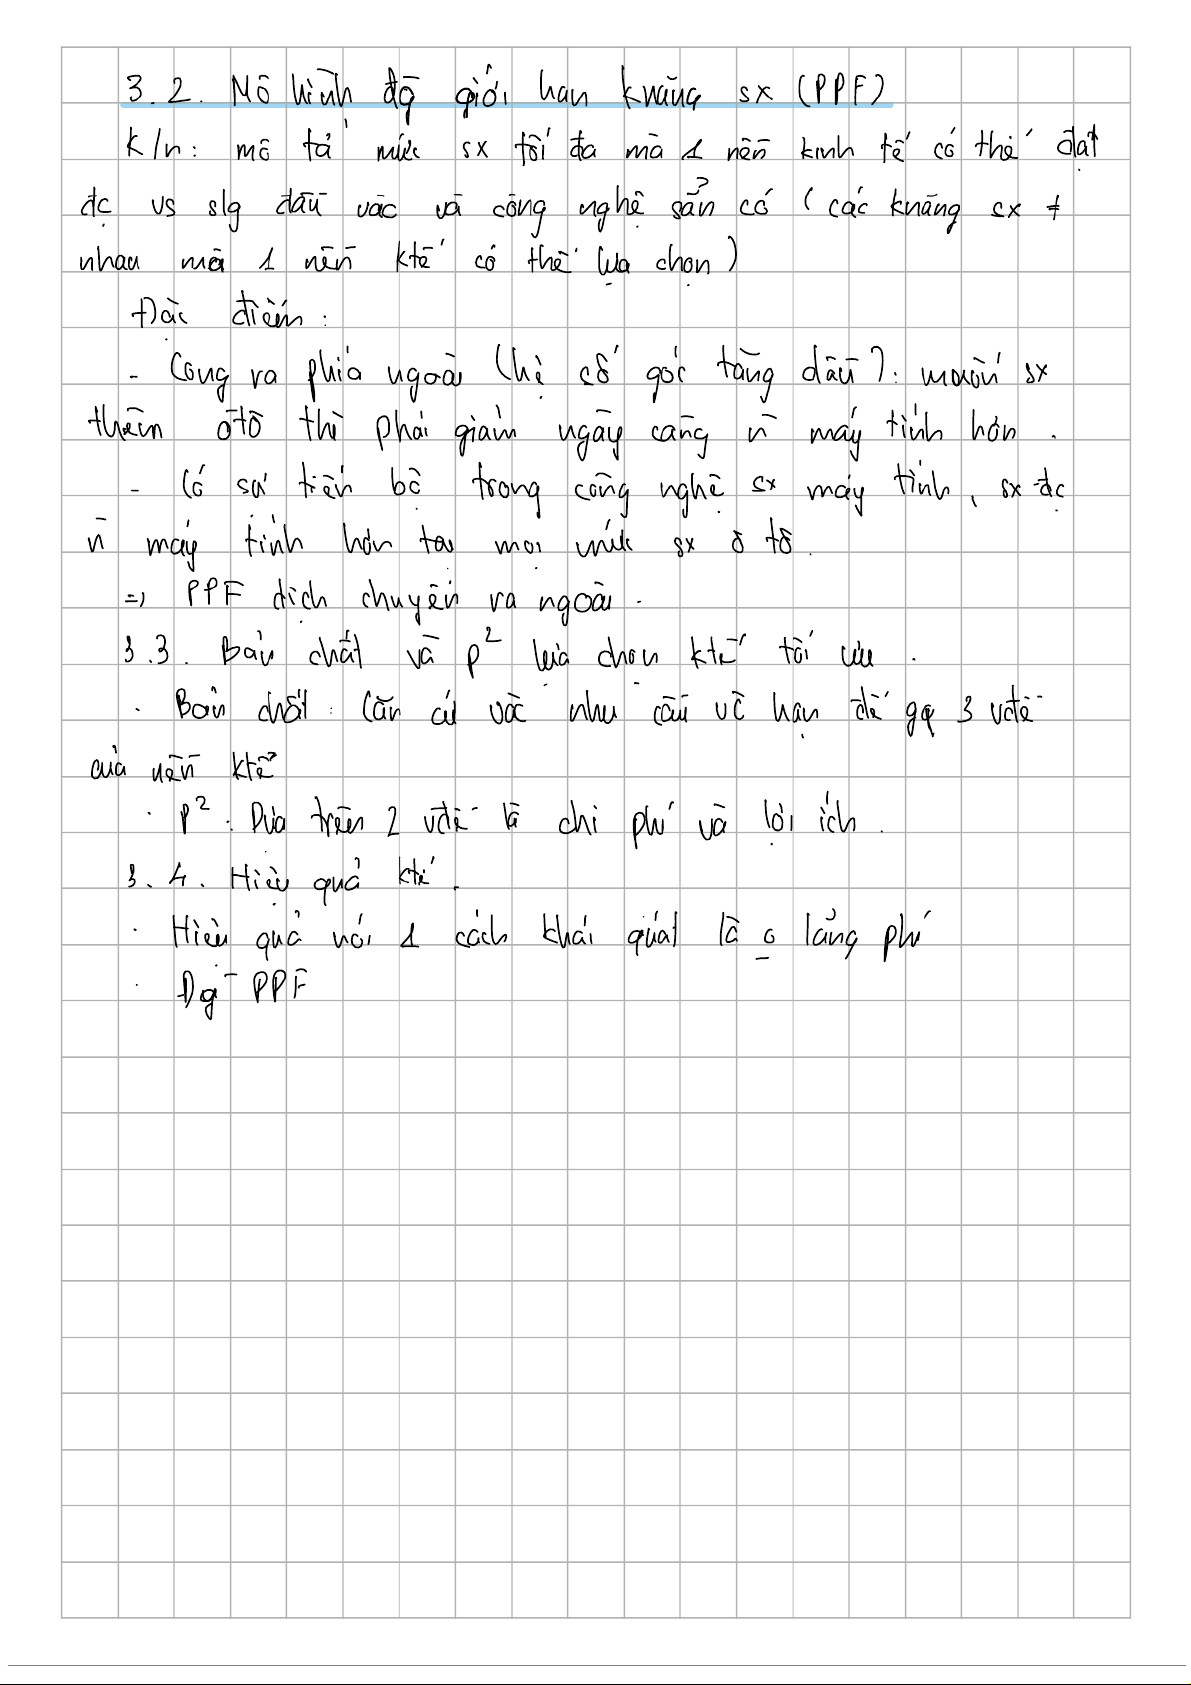 3.2. Mô hình đg giới hạn knăng sx (PPF)
K/n: mô tả mức sx tối đa mà 1 nền kinh tế có thể đạt
đc vs slg đầu vào và công nghệ sẵn có (các knăng sx ≠
nhau mà 1 nền ktế có thể lựa chọn)
Đặc điểm:
- Cong ra phía ngoài (hệ số góc tăng dần): muốn sx
thêm ôtô thì phải giảm ngày càng n̄ máy tính hơn.
- Có sự tiến bộ trong công nghệ sx máy tính, sx đc
n̄ máy tính hơn tại mọi mức sx ô tô.
=> PPF dịch chuyển ra ngoài.
3.3. Bản chất và p² lựa chọn ktế tối ưu.
. Bản chất: Căn cứ vào nhu cầu vô hạn để gq 3 vđề
của nền ktế
. P²: Dựa trên 2 vđề là chi phí và lợi ích.
3.4. Hiệu quả ktế.
. Hiệu quả nói 1 cách khái quát là o̲ lãng phí
. Đg PPF